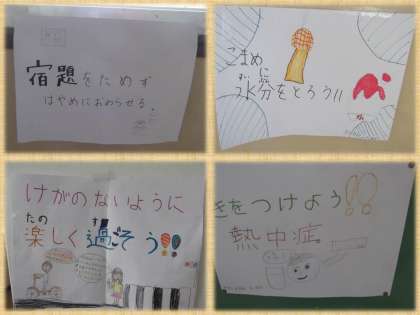 宿題をためず
はやめにおわらせる
こまめに
すい
水分をとろう!!
けがのないように
たの す
楽しく過ごそう!!
きをつけよう!!
熱中症。